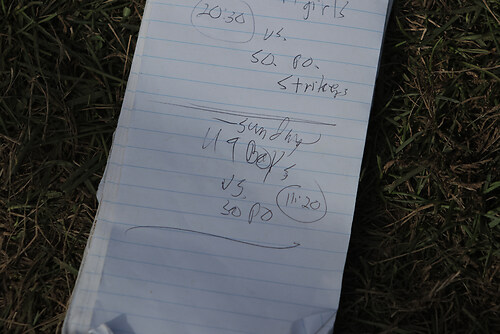 girls
20:30 vs.
So. Po.
Strikers
Sunday
U9 Boys
vs. 11:20
So Po